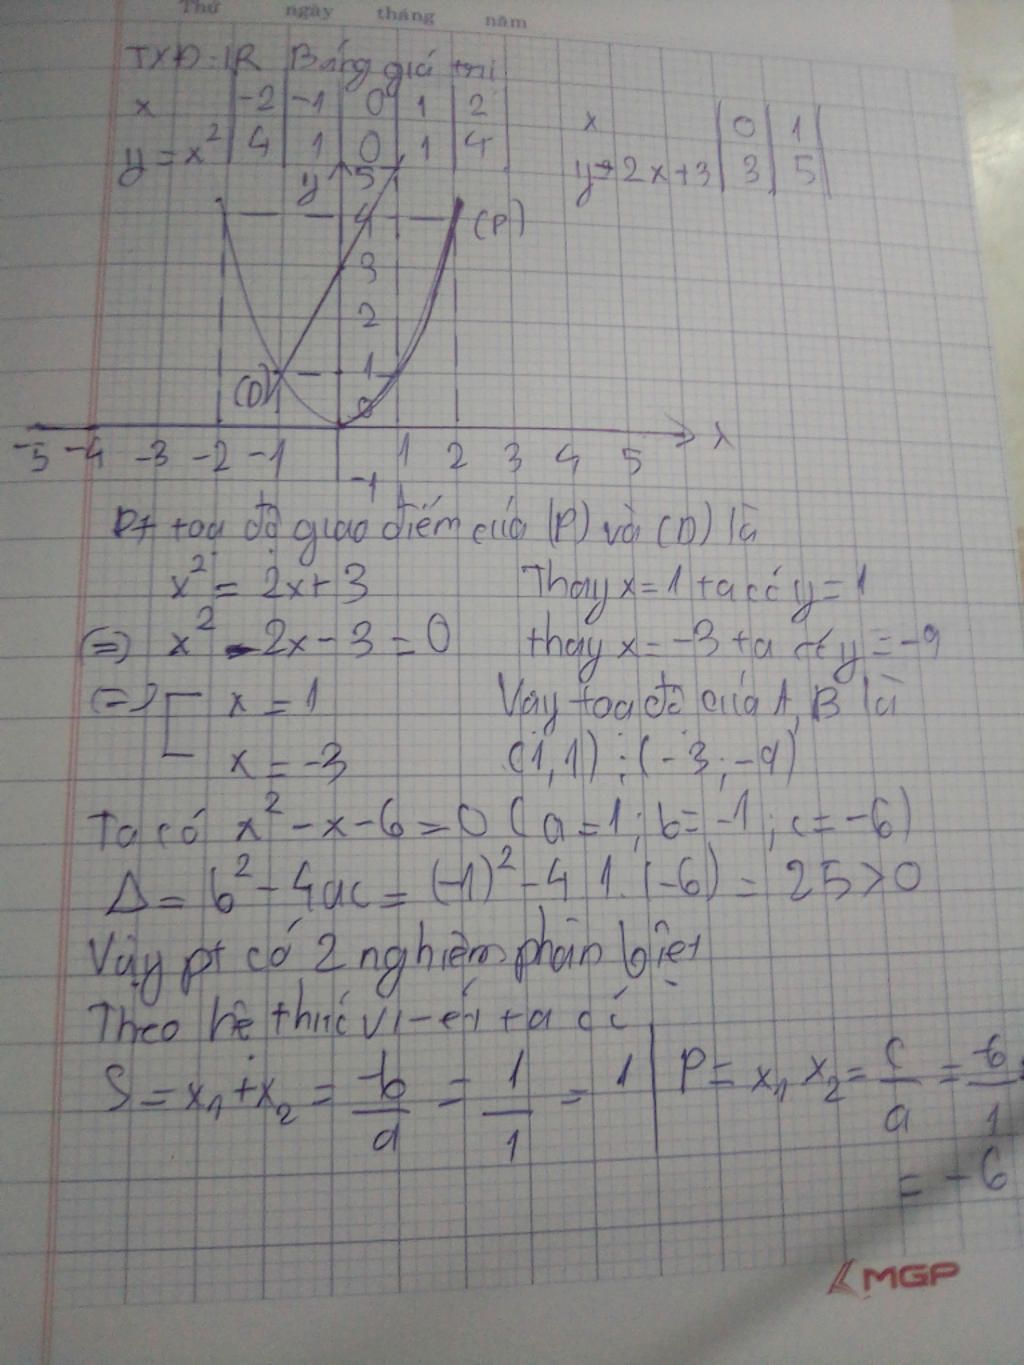 Thứ ngày tháng năm
TXĐ: IR Bảng giá trị
x -2 -1 0 1 2
y = x² 4 1 0 1 4
x 0 1
y = 2x+3 3 5
y 5
4 (P)
3
2
(D) 1
0
-5 -4 -3 -2 -1 1 2 3 4 5 x
-1
Pt toạ độ giao điểm của (P) và (D) là
x² = 2x+3
(=) x² - 2x - 3 = 0
(=) [ x = 1
x = -3
Thay x = 1 ta có y = 1
thay x = -3 ta có y = -9
Vậy toạ độ của A, B là
(1,1) ; (-3; -9)
Ta có x² - x - 6 = 0 (a = 1; b = -1; c = -6)
Δ = b² - 4ac = (-1)² - 4 1. (-6) = 25 > 0
Vậy pt có 2 nghiệm phân biệt
Theo hệ thức vi-ét ta có
S = x₁ + x₂ = -b/a = 1/1 = 1 | P = x₁ x₂ = c/a = -6/1
= -6
MGP